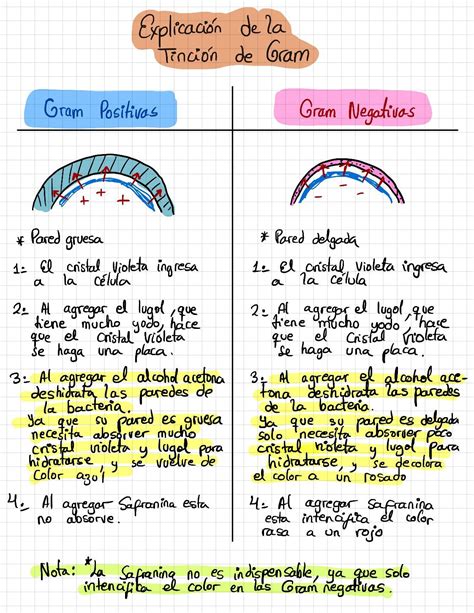 Explicación de la
Tinción de Gram
Gram Positivas
+ + +
* Pared gruesa
1= El cristal violeta ingresa
a la célula
2= Al agregar el lugol, que
tiene mucho yodo, hace
que el Cristal Violeta
se haga una placa.
3= Al agregar el alcohol acetona
deshidrata las paredes de
la bacteria.
Ya que su pared es gruesa
necesita absorver mucho
cristal violeta y lugol para
hidratarse, y se vuelve de
Color azul
4= Al agregar Safranina esta
no absorve.
Gram Negativas
- - -
* Pared delgada
1= El cristal violeta ingresa
a la célula
2= Al agregar el lugol, que
tiene mucho yodo, hace
que el Cristal Violeta
se haga una placa.
3= Al agregar el alcohol ace-
tona deshidrata las paredes
de la bacteria.
Ya que su pared es delgada
solo necesita absorver poco
cristal violeta y lugol para
hidratarse, y se decolora
el color a un rosado
4= Al agregar safranina
esta intencifita el color
rasa a un rojo
Nota: *La Safranina no es indispensable, ya que solo
intencifita el color en las Gram negativas.